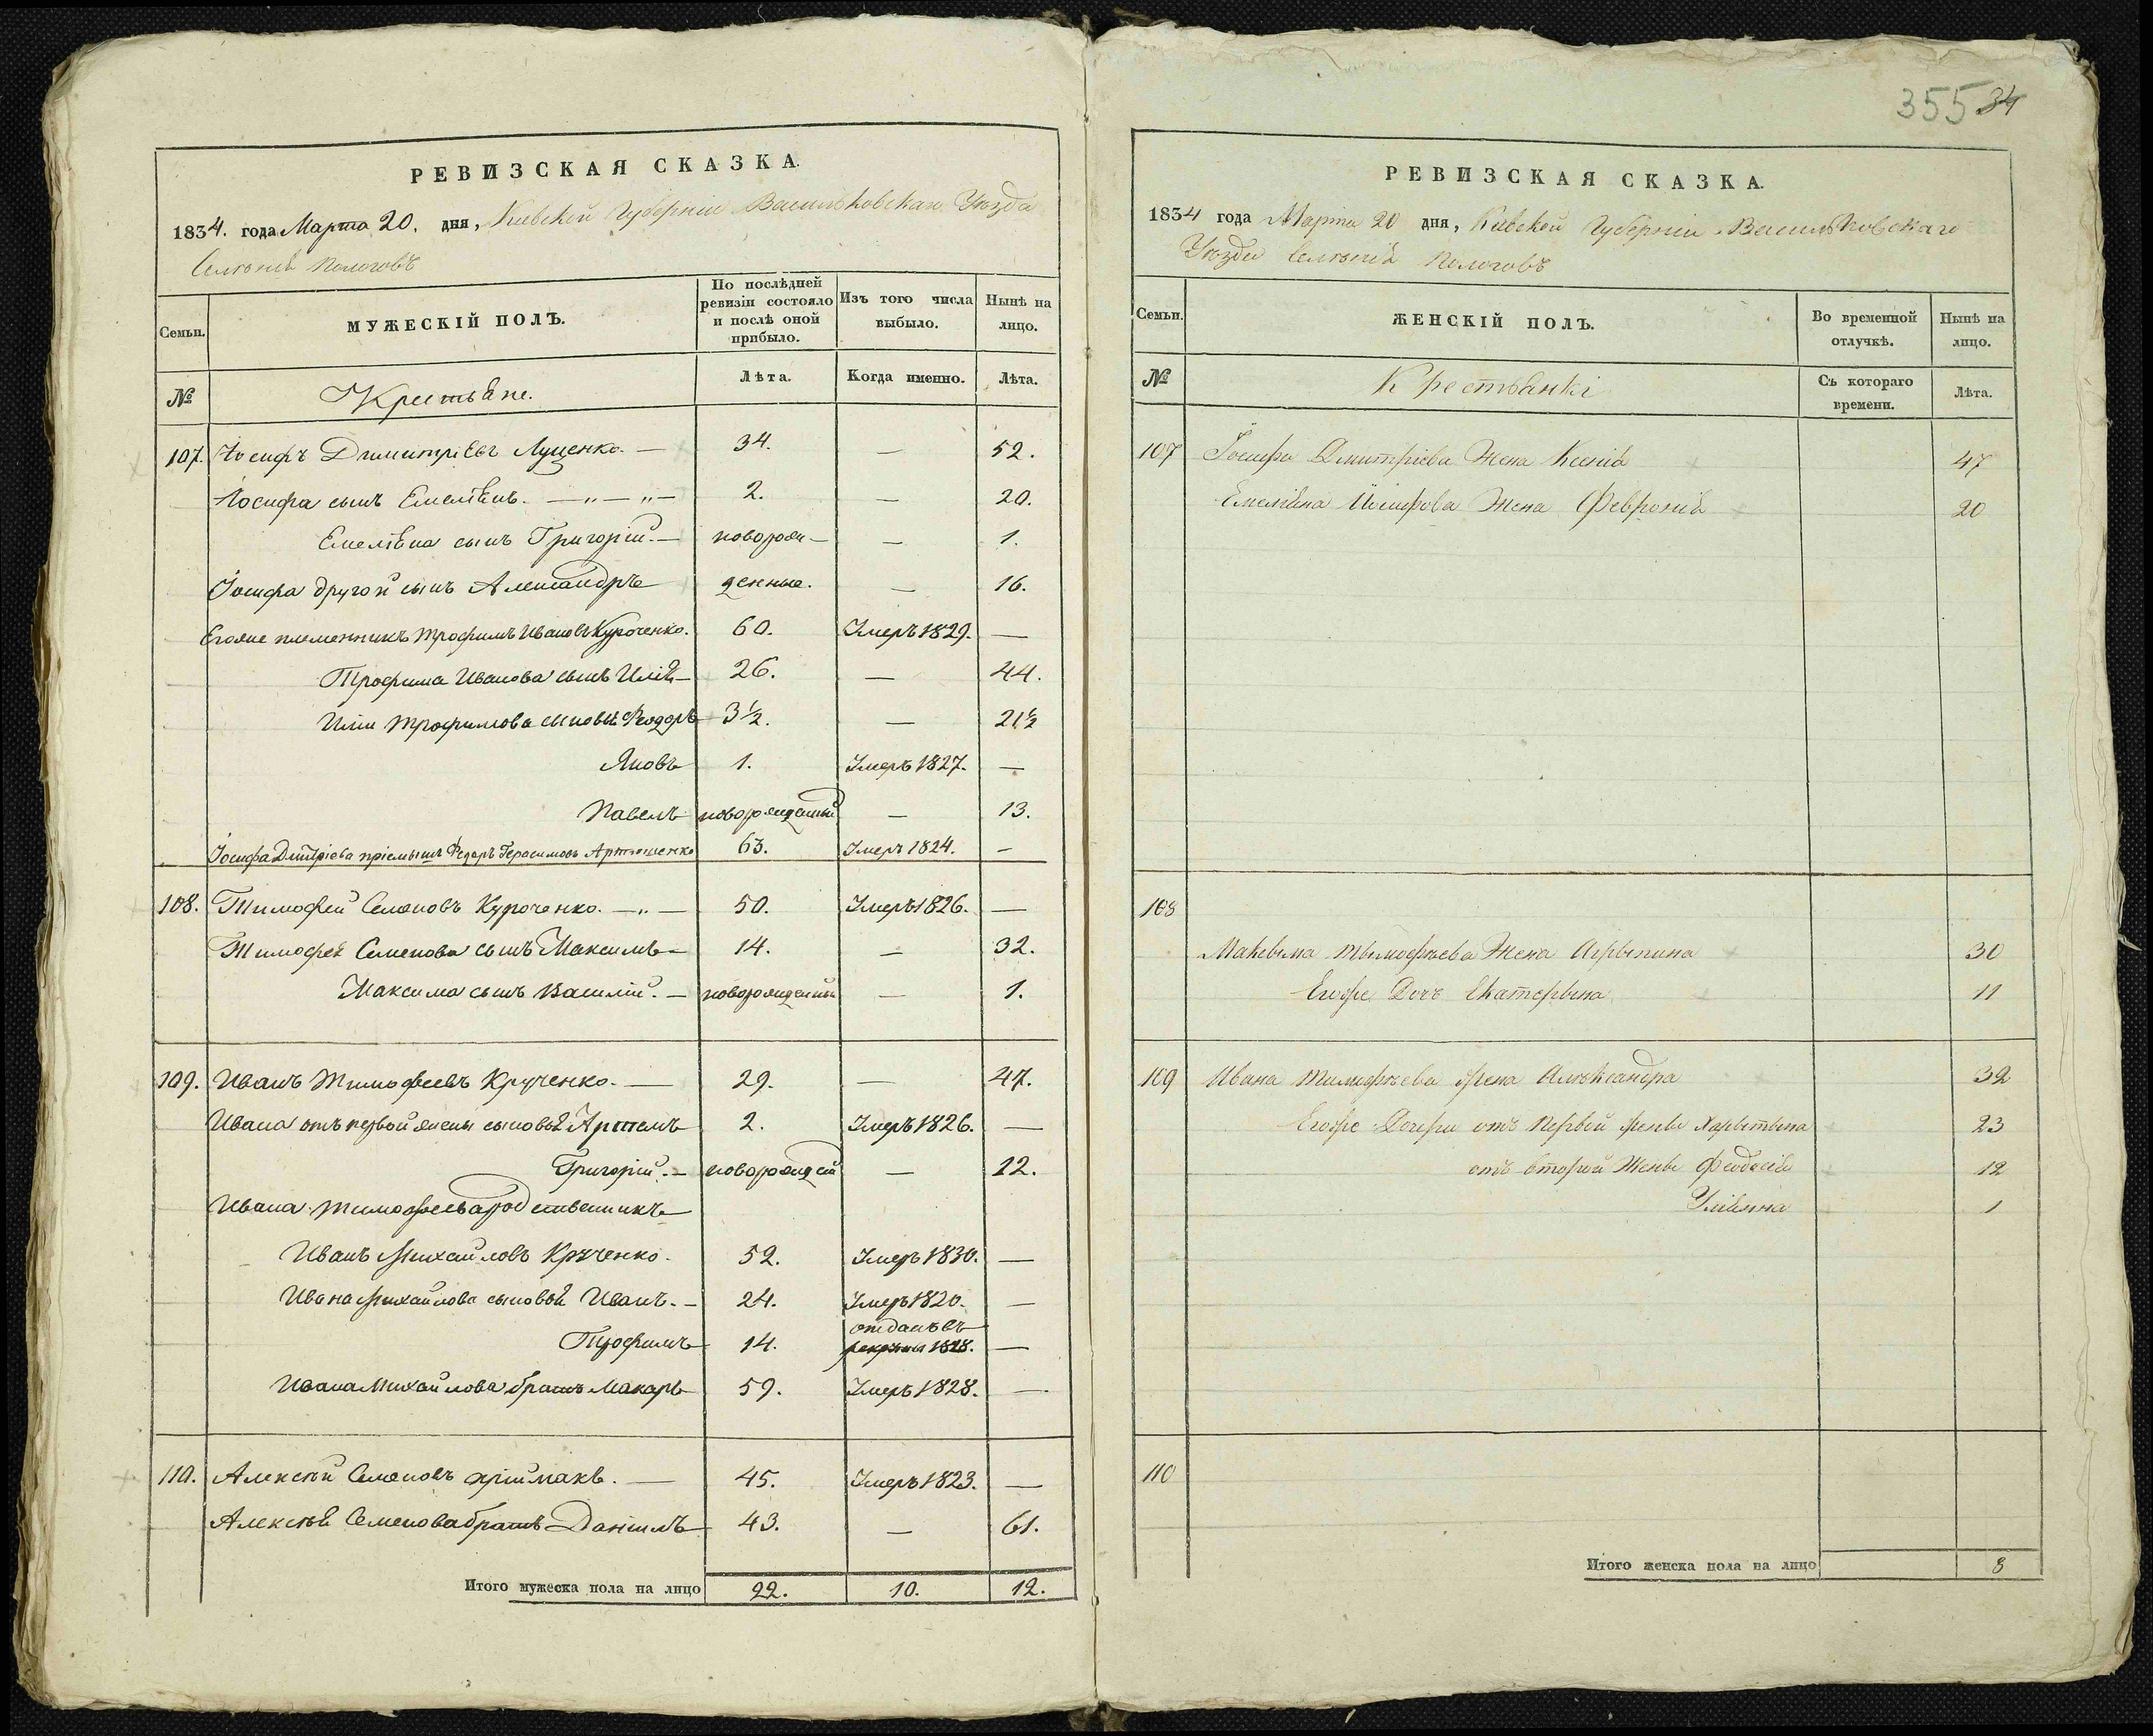 355 34
РЕВИЗСКАЯ СКАЗКА.
1834. года Марта 20. дня, Киевской Губерніи Васильковскаго Уѣзда
Селенія Пологовъ
Семьи. МУЖЕСКІЙ ПОЛЪ. По послѣдней ревизіи состояло и послѣ оной прибыло. Изъ того числа выбыло. Нынѣ на лицо.
№ Крестьяне. Лѣта. Когда именно. Лѣта.
107. Іосифъ Димитріевъ Луценко. — 34. — 52.
Іосифа сынъ Емеліянъ. — „ — „ — 2. — 20.
Емеліяна сынъ Григорій. — новорож— — 1.
Іосифа другой сынъ Александръ денные. — 16.
Егоже племенникъ Трофимъ Ивановъ Куроченко. 60. Умеръ 1829. —
Трофима Иванова сынъ Илія — 26. — 44.
Иліи Трофимова сыновья Феодоръ 3½. — 21½
Яковъ 1. Умеръ 1827. —
Павелъ новорожденный — 13.
Іосифа Дмитріева пріемышъ Федоръ Герасимовъ 63. Умеръ 1824. —
108. Тимофей Семеновъ Куроченко. — „ — 50. Умеръ 1826. —
Тимофея Семенова сынъ Максимъ — 14. — 32.
Максима сынъ Василій. — новорожденный — 1.
109. Иванъ Тимофеевъ Крученко. — 29. — 47.
Ивана отъ первой жены сыновья Артемъ 2. Умеръ 1826. —
Григорій. — новорождей — 12.
Ивана Тимофеева родственникъ
Иванъ Михайловъ Крученко. 52. Умеръ 1830. —
Ивана Михайлова сыновья Иванъ. — 24. Умеръ 1820. —
Трофимъ 14. отданъ въ рекруты 1828. —
Ивана Михайлова братъ Макаръ 59. Умеръ 1828. —
110. Алексѣй Семеновъ 45. Умеръ 1823. —
Алексѣя Семенова братъ Даніилъ 43. — 61.
Итого мужеска пола на лицо 22. 10. 12.
РЕВИЗСКАЯ СКАЗКА.
1834 года Марта 20 дня, Киевской Губерніи Васильковскаго
Уѣзда Селенія Пологовъ
Семьи. ЖЕНСКІЙ ПОЛЪ. Во временной отлучкѣ. Нынѣ на лицо.
№ Крестьянкі Съ котораго времени. Лѣта.
107 Іосифа Дмитріева Жена Ксенія 47
Емеліяна Іосифова Жена Февронія 20
108
Максыма Тымофѣева Жена Агрыпина 30
Егоже Дочь Екатерына 11
109 Ивана Тимофѣева жена Алѣксандра 32
Егоже Дочери отъ Первой жены Харытына 23
отъ второй Жены Феодосія 12
Уліянна 1
110
Итого женска пола на лицо 8